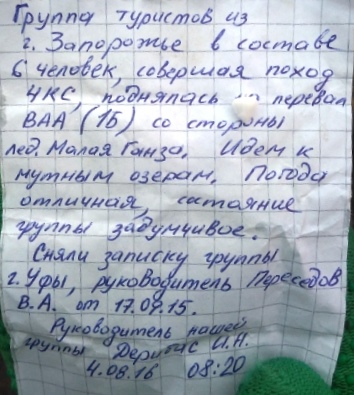 Группа туристов из
г. Запорожье в составе
6 человек, совершая поход
4КС, поднялась на перевал
ВАА (1Б) со стороны
лед. Малая Ганза. Идем к
мутным озерам. Погода
отличная, состояние
группы задумчивое.
Сняли записку группы
г. Уфы, руководитель Переседов
В.А. от 17.07.15.
Руководитель нашей
группы Дерибас И.Н.
4.08.16 08:20